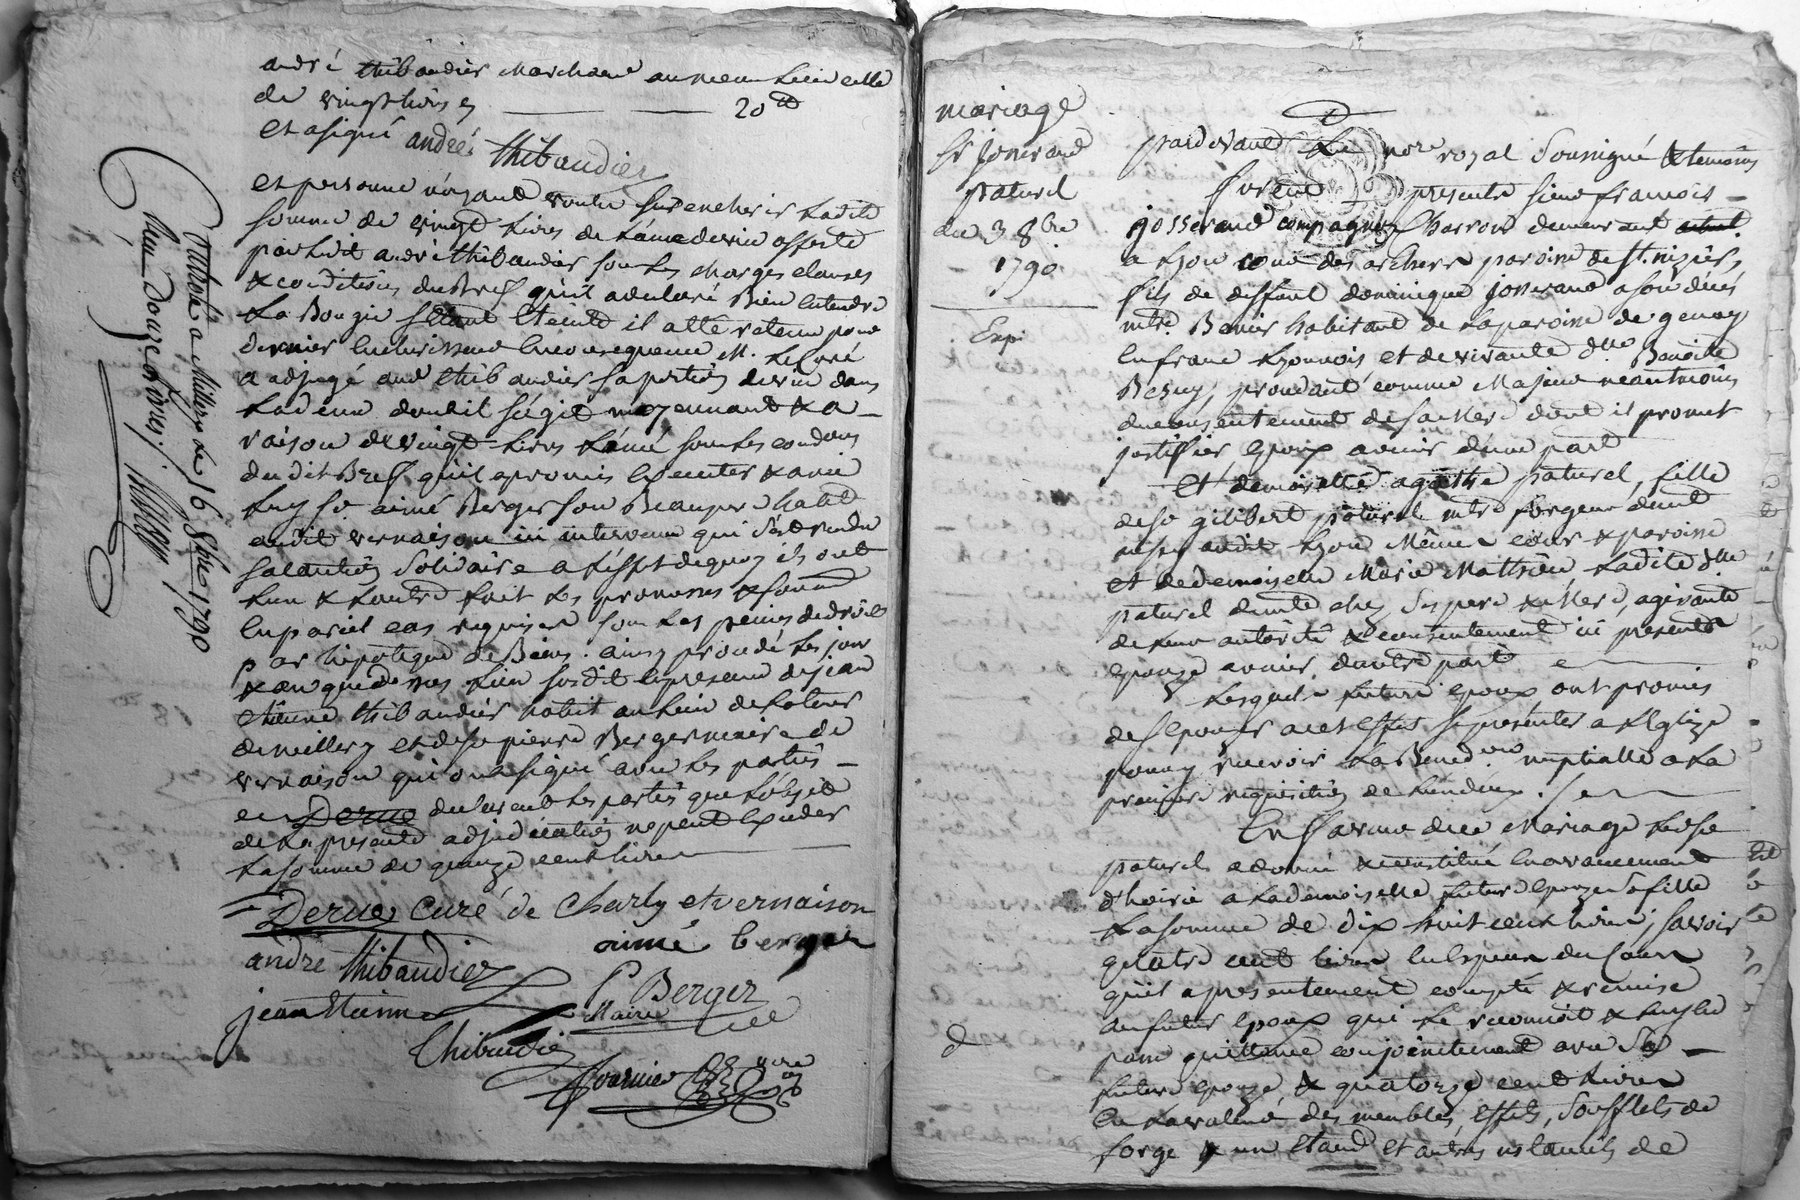 andré thibaudier marchand au meme lieu celle
de vingt livres 20 ₶
et a signé andré thibaudier
et personne n'ayant voulu sur encherir ladite
somme de vingt livres de l'année de vin offerte
par ledit andré thibaudier sous les charges clauses
& conditions du Bref qu'il a declaré Bien entendre
La Bougie s'etant eteinte il a été retenu pour
dernier encherisseur en consequence M. le Curé
a adjugé aud thibaudier la portion de vin dans
la dixme dont il s'agit moyennant & a
raison de vingt livres l'année sous les conditions
du dit Bref qu'il a promis executer & avec
luy sr aimé Berger son Beaupere habit
audit vernaison ici intervenu qui s'est rendu
Solidaire a l'effet de quoy ils ont
l'un & l'autre fait les promesses &
en pareil cas requises sous les peines de droit
par hipoteque de Biens. ainsy procédé les jour
& an que dessus lieu susdit en presence de jean
etienne thibaudier habit au lieu de
de millery et de sr pierre Berger maire de
vernaison qui ont signé avec les parties
Derue declarent les parties que l'objet
de la presente adjudication ne peut exceder
la somme de quinze cent livres
Derue Curé de Charly et vernaison
aimé berger
andré thibaudier
P Berger
Maire
jean etienne
Thibaudier
fournier nore
Controlé a Millery le 16 8bre 1790
Reçu Douze
mariage
Sr Josserand
paturel
du 3 8bre
1790
Exp
pardevant Le nore royal Soussigné & temoins
furent presents sieur francois
josserand compagnon Charron demeurant
a Lyon rue des archers paroisse de st. nizier,
fils de deffunt dominique josserand a son décès
mtre habitant de la paroisse de genay
en franc lyonnois et de vivante dlle Benoite
procedant comme Majeur neantmoins
du consentement de sa Mere dont il promet
justifier epoux avenir d'une part
et demoiselle agathe paturel, fille
de sr gilibert paturel mtre forgeur
audit Lyon même rue & paroisse
et de demoiselle Marie Mathieu ladite dlle
paturel demte chez ses pere & Mere, agissante
de leur autorité & consentement ici presents
epouze avenir d'autre part
Lesquels futurs epoux ont promis
de s'epouser a cet effet se presenter a l'Eglize
pour y recevoir la Bened.on nuptialle a la
premiere requisition de l'un d'eux
En faveur duce Mariage Ledit sr
paturel a donné & constitué en avancement
d'hoirie a la demoiselle future epouze Sa fille
la somme de dix huit cent livres; scavoir
quatre cent livres en espèces du Cours
qu'il a presentement compté & remise
au futur epoux qui le reconnoit &
pour quittance conjointement avec Sa
future epouze & quatorze cent livres
en la valeur des meubles, effets, Soufflets de
forge & un Etaud et autres ustancils de